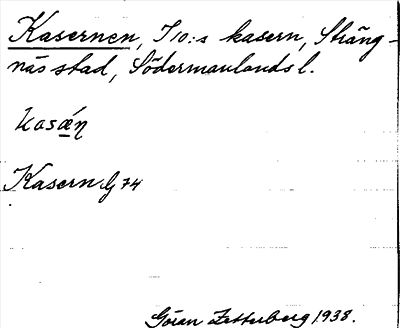 Kasernen, I 10:s kasern, Sträng-
näs stad, Södermanlands l.
kasǽn
Kasern G 74
Göran Zetterberg 1938.